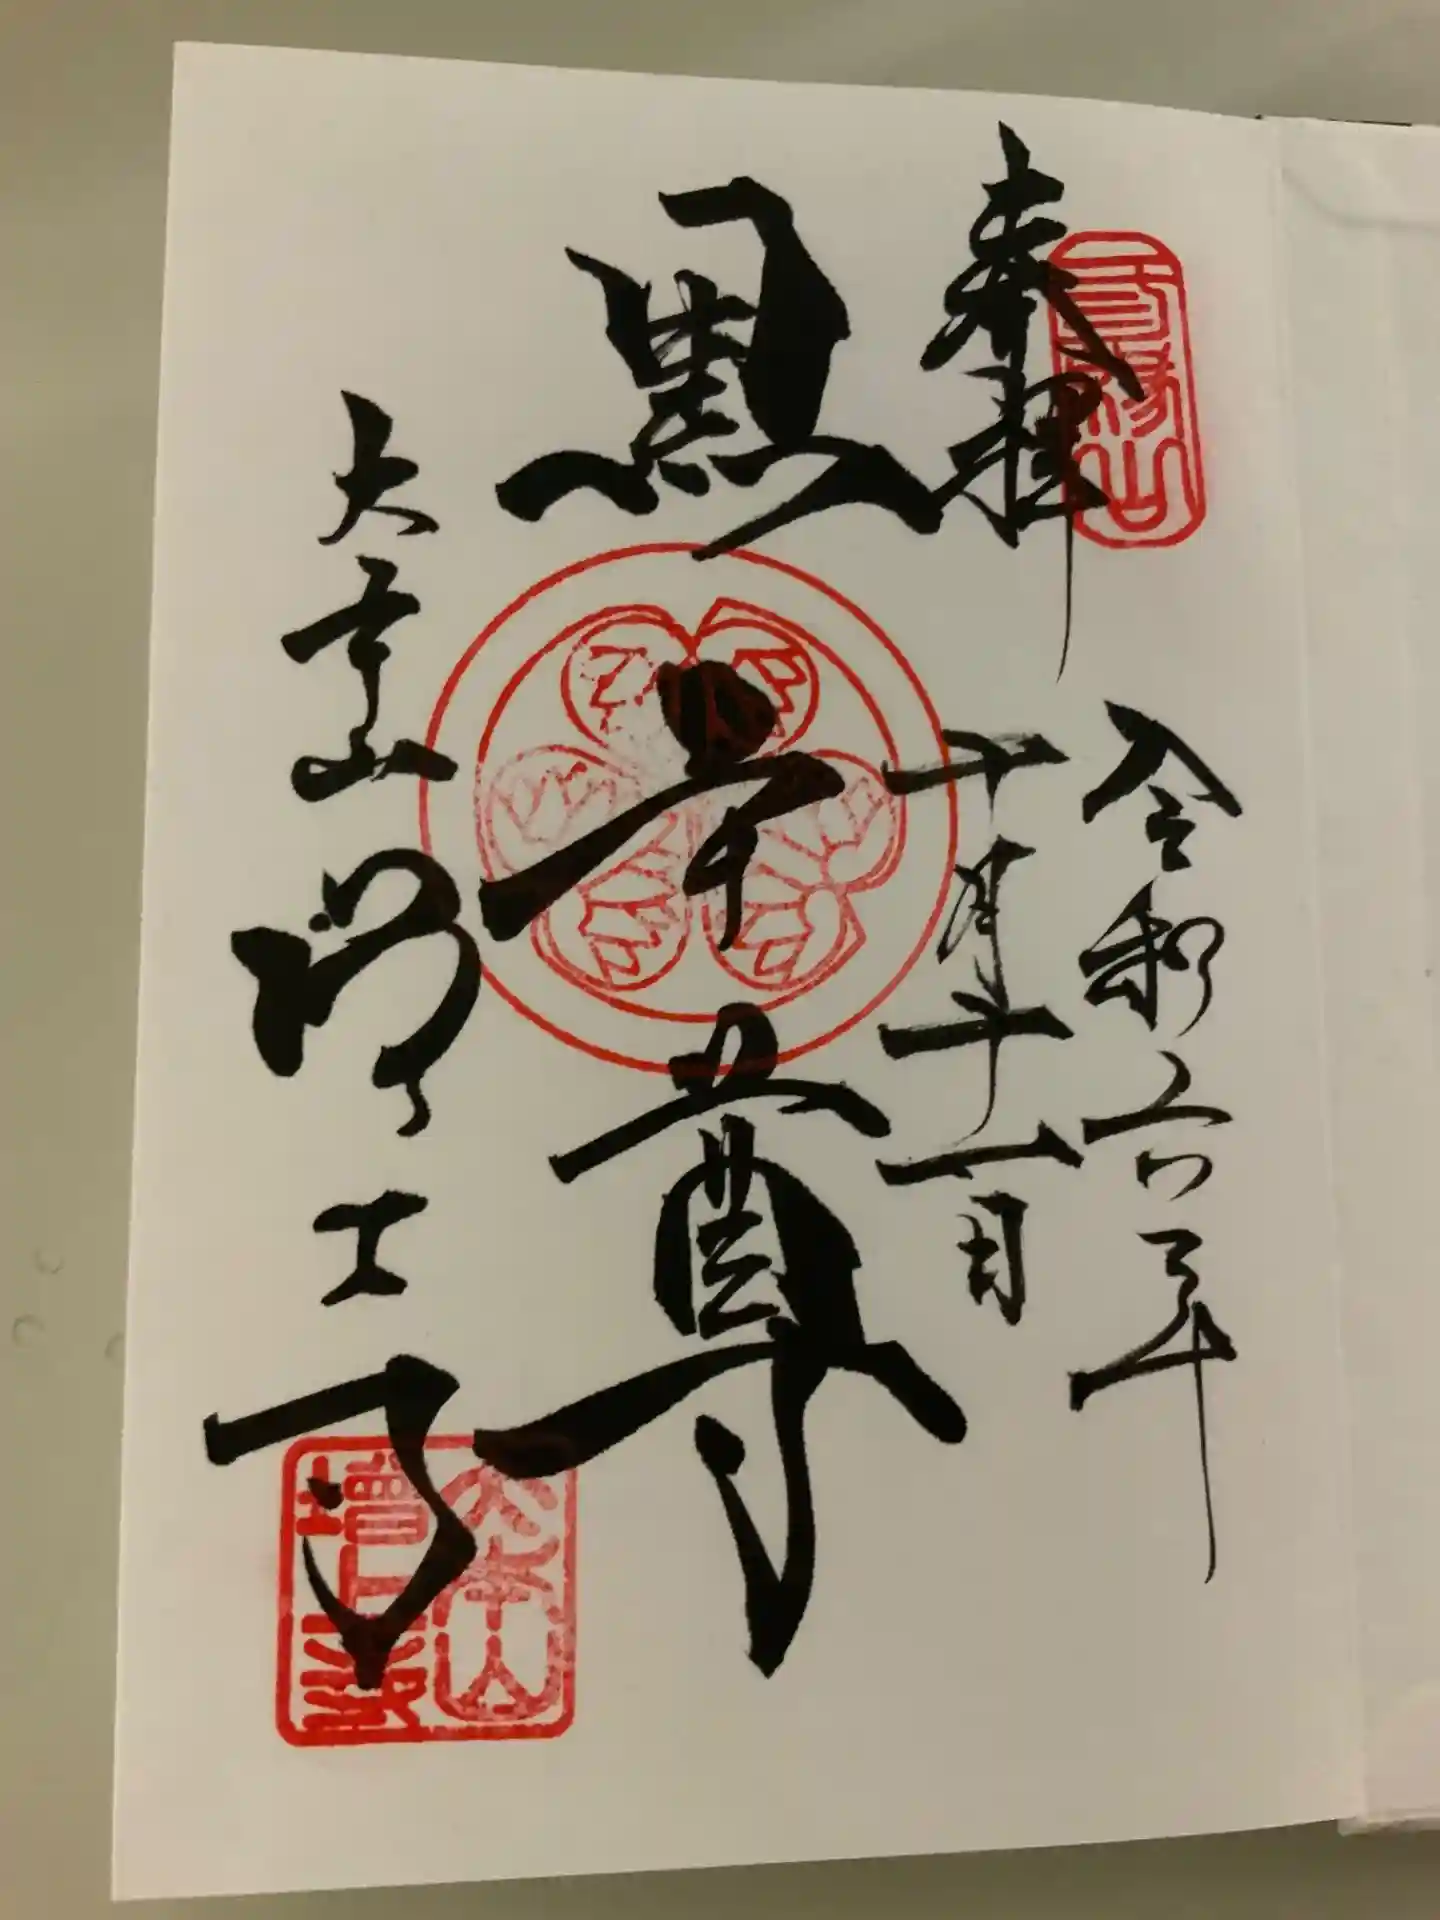 三縁山
奉拝
令和六年
十月十一日
黒本尊
大本山増上寺
大本山
増上寺